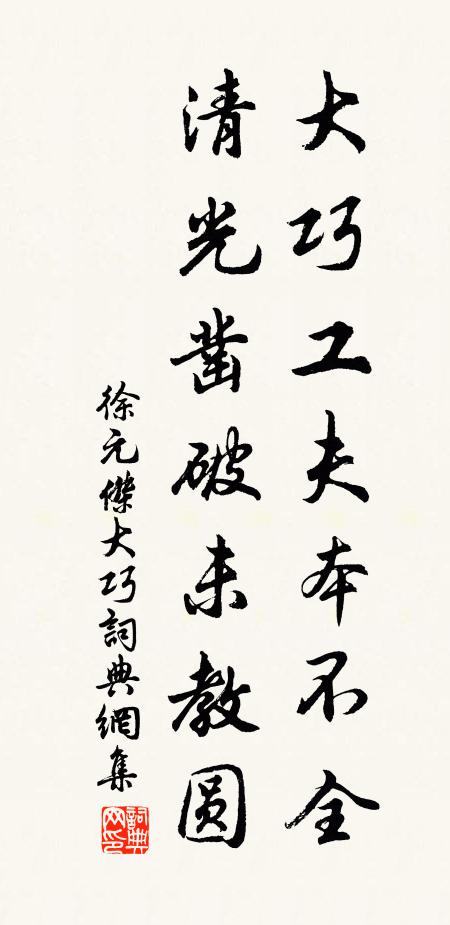 大巧工夫本不全
清光凿破未教圆
徐元傑大巧詞典網集
詞典网印